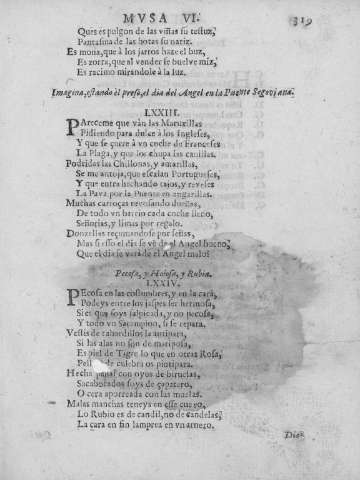 MVSA VI. 319
Que es pulgon de las viñas su testuz,
Pantasma de las botas su nariz.
Es mona, que à los jarros haze el buz,
Es zorra, que al vender se buelve miz,
Es racimo mirandole à la luz.
Imagina, estando èl preso, el dia del Angel en la Puente Segoviana.
LXXIII.
PAreceme que vàn las
Pidiendo para dulce à los Ingleses,
Y que se corre à vn coche de Franceses
La Plaga, y que los chupa las canillas.
Podridas las Chillonas, y amarillas,
Se me antoja, que escalan Portugueses,
Y que entra hachando tajos, y reveses
La Pava por la Puente en angarillas.
Muchas carroças revosando dueñas,
De todo vn barrio cada coche lleno,
Señorias, y limas por regalo.
Donzellas requmandose por señas,
Mas si esso el dia se vè del Angel bueno,
Que el dia se verà de el Angel malo?
Pecosa, y Hoiosa, y Rubia.
LXXIV.
PEcosa en las costumbres, y en la cara,
Podeys entre los jaspes ser hermosa,
Si es que soys salpicada, y no pecosa,
Y todo vn, si se repara.
Vestis de tabardillos la antipara,
Si las alas no son de mariposa,
Es piel de Tigre lo que en otras Rosa,
de culebra os pintipara.
Hecha panal con oyos de biruelas,
Sacabocados soys de çapatero,
O cera aporreada con las muelas.
Malas manchas teneys en esse cuero,
Lo Rubio es de candil, no de candelas,
La cara en fin lamprea en vn arnero.
Diez